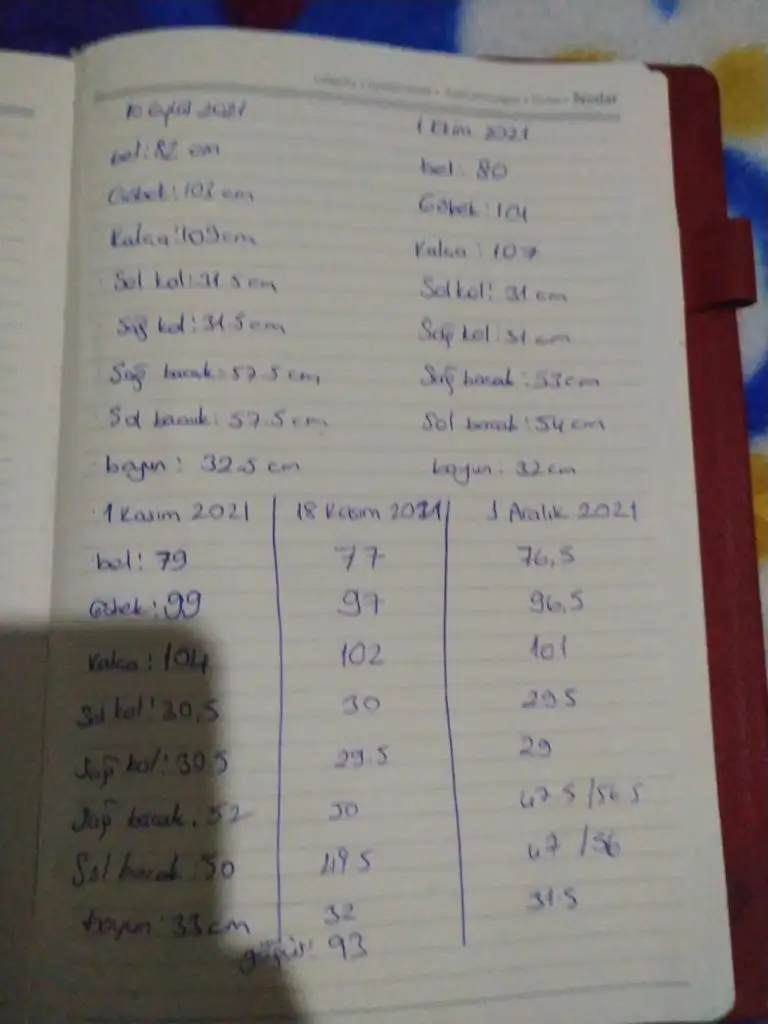 Notlar
10 Eylül 2021
bel: 82 cm
Göbek: 103 cm
Kalça: 109 cm
Sol kol: 31.5 cm
Sağ kol: 31.5 cm
Sağ bacak: 57.5 cm
Sol bacak: 57.5 cm
boyun: 32.5 cm
1 Ekim 2021
bel: 80
Göbek: 101
Kalça: 107
Sol kol: 31 cm
Sağ kol: 31 cm
Sağ bacak: 53 cm
Sol bacak: 54 cm
boyun: 32 cm
1 Kasım 2021 18 Kasım 2021 1 Aralık 2021
bel: 79 77 76,5
Göbek: 99 97 96,5
Kalça: 104 102 101
Sol kol: 30,5 30 29.5
Sağ kol: 30.5 29.5 29
Sağ bacak: 52 50 47.5 / 56.5
Sol bacak: 50 49.5 47 / 56
boyun: 33 cm 32 31.5
göğüs: 93